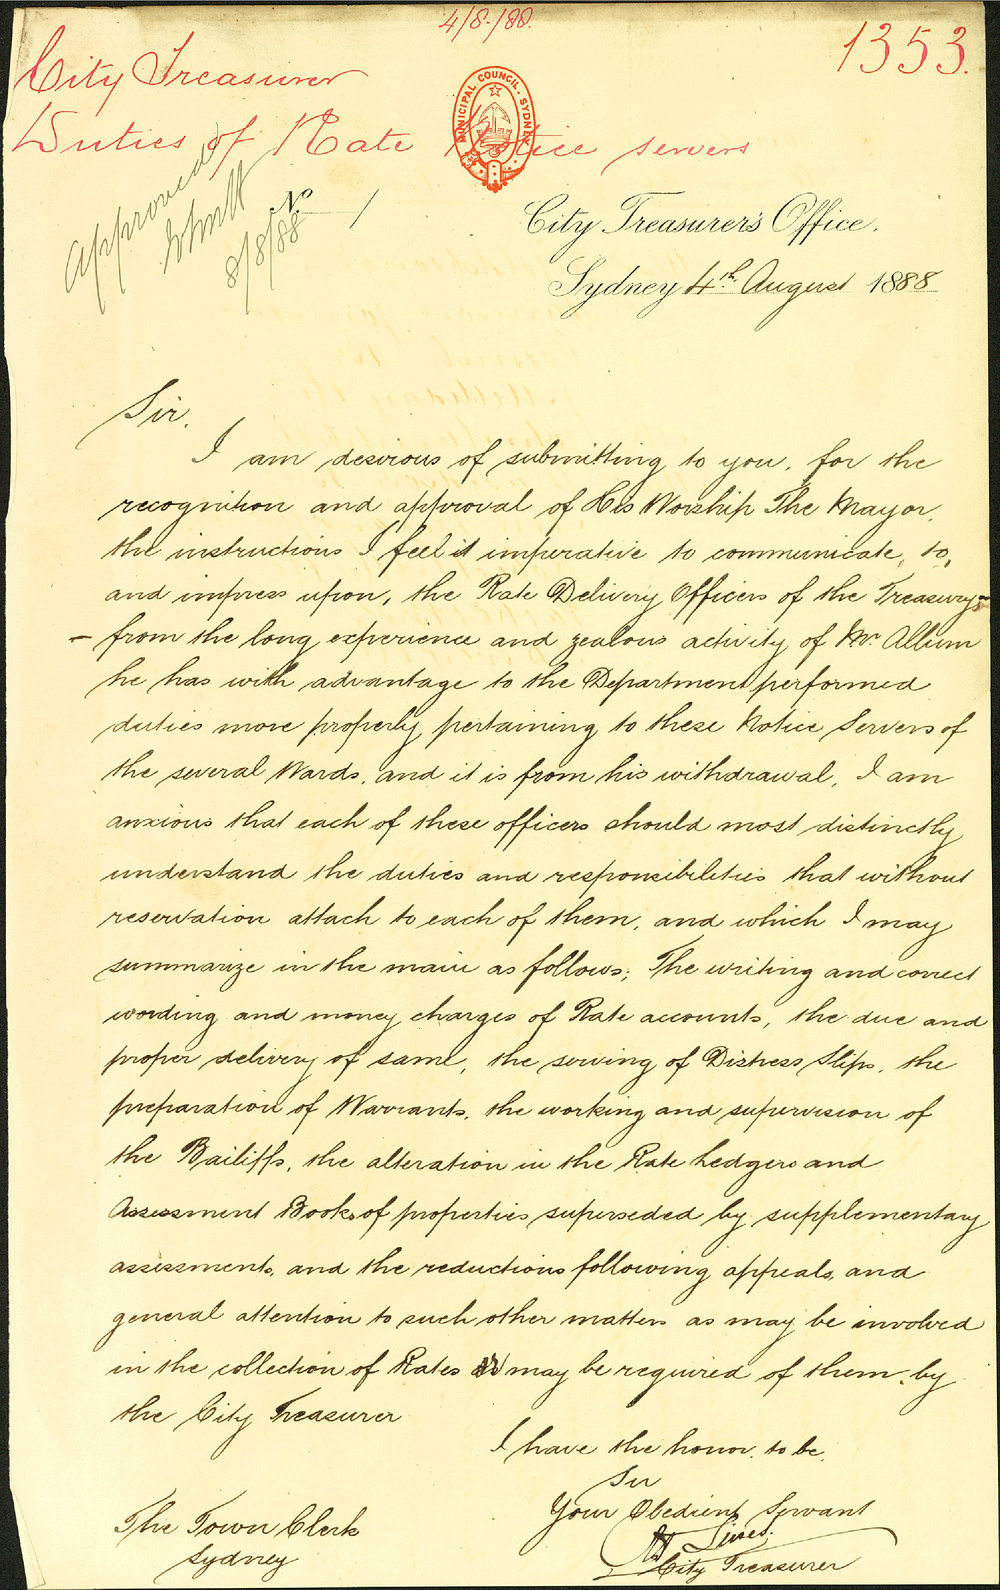 4/8/88.
1353.
City Treasurer
Duties of Rate Notice servers
MUNICIPAL COUNCIL. SYDNEY
Approved
8/8/88
No 1
City Treasurer's Office.
Sydney 4th August 1888
Sir,
I am desirous of submitting to you, for the
recognition and approval of His Worship The Mayor,
the instructions I feel it imperative to communicate, to,
and impress upon, the Rate Delivery Officers of the Treasury;
– from the long experience and zealous activity of Mr. Allum
he has with advantage to the Department performed
duties more properly pertaining to these Notice Servers of
the several Wards, and it is from his withdrawal, I am
anxious that each of these officers should most distinctly
understand the duties and responsibilities that without
reservation attach to each of them, and which I may
summarize in the main as follows; The writing and correct
wording and money charges of Rate accounts, the due and
proper delivery of same, the serving of Distress Slips, the
preparation of Warrants, the working and supervision of
the Bailiffs, the alteration in the Rate Ledgers and
Assessment Books of properties superseded by supplementary
assessments, and the reductions following appeals, and
general attention to such other matters as may be involved
in the collection of Rates or may be required of them, by
the City Treasurer
I have the honor, to be,
Sir
Your Obedient Servant
City Treasurer
The Town Clerk
Sydney